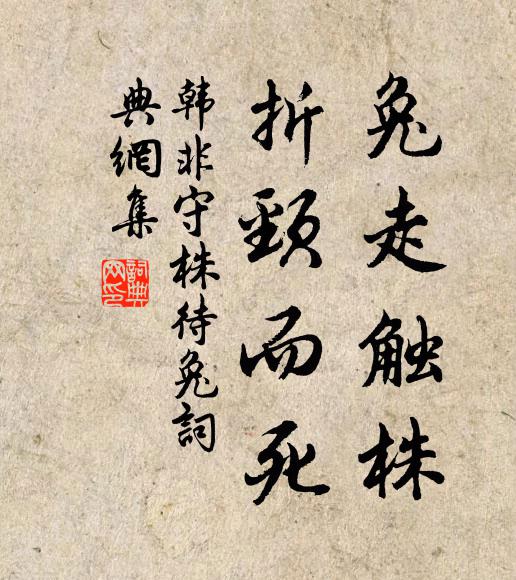 兔走触株
折頸而死
韩非守株待兔詞
典網集
詞典
网印